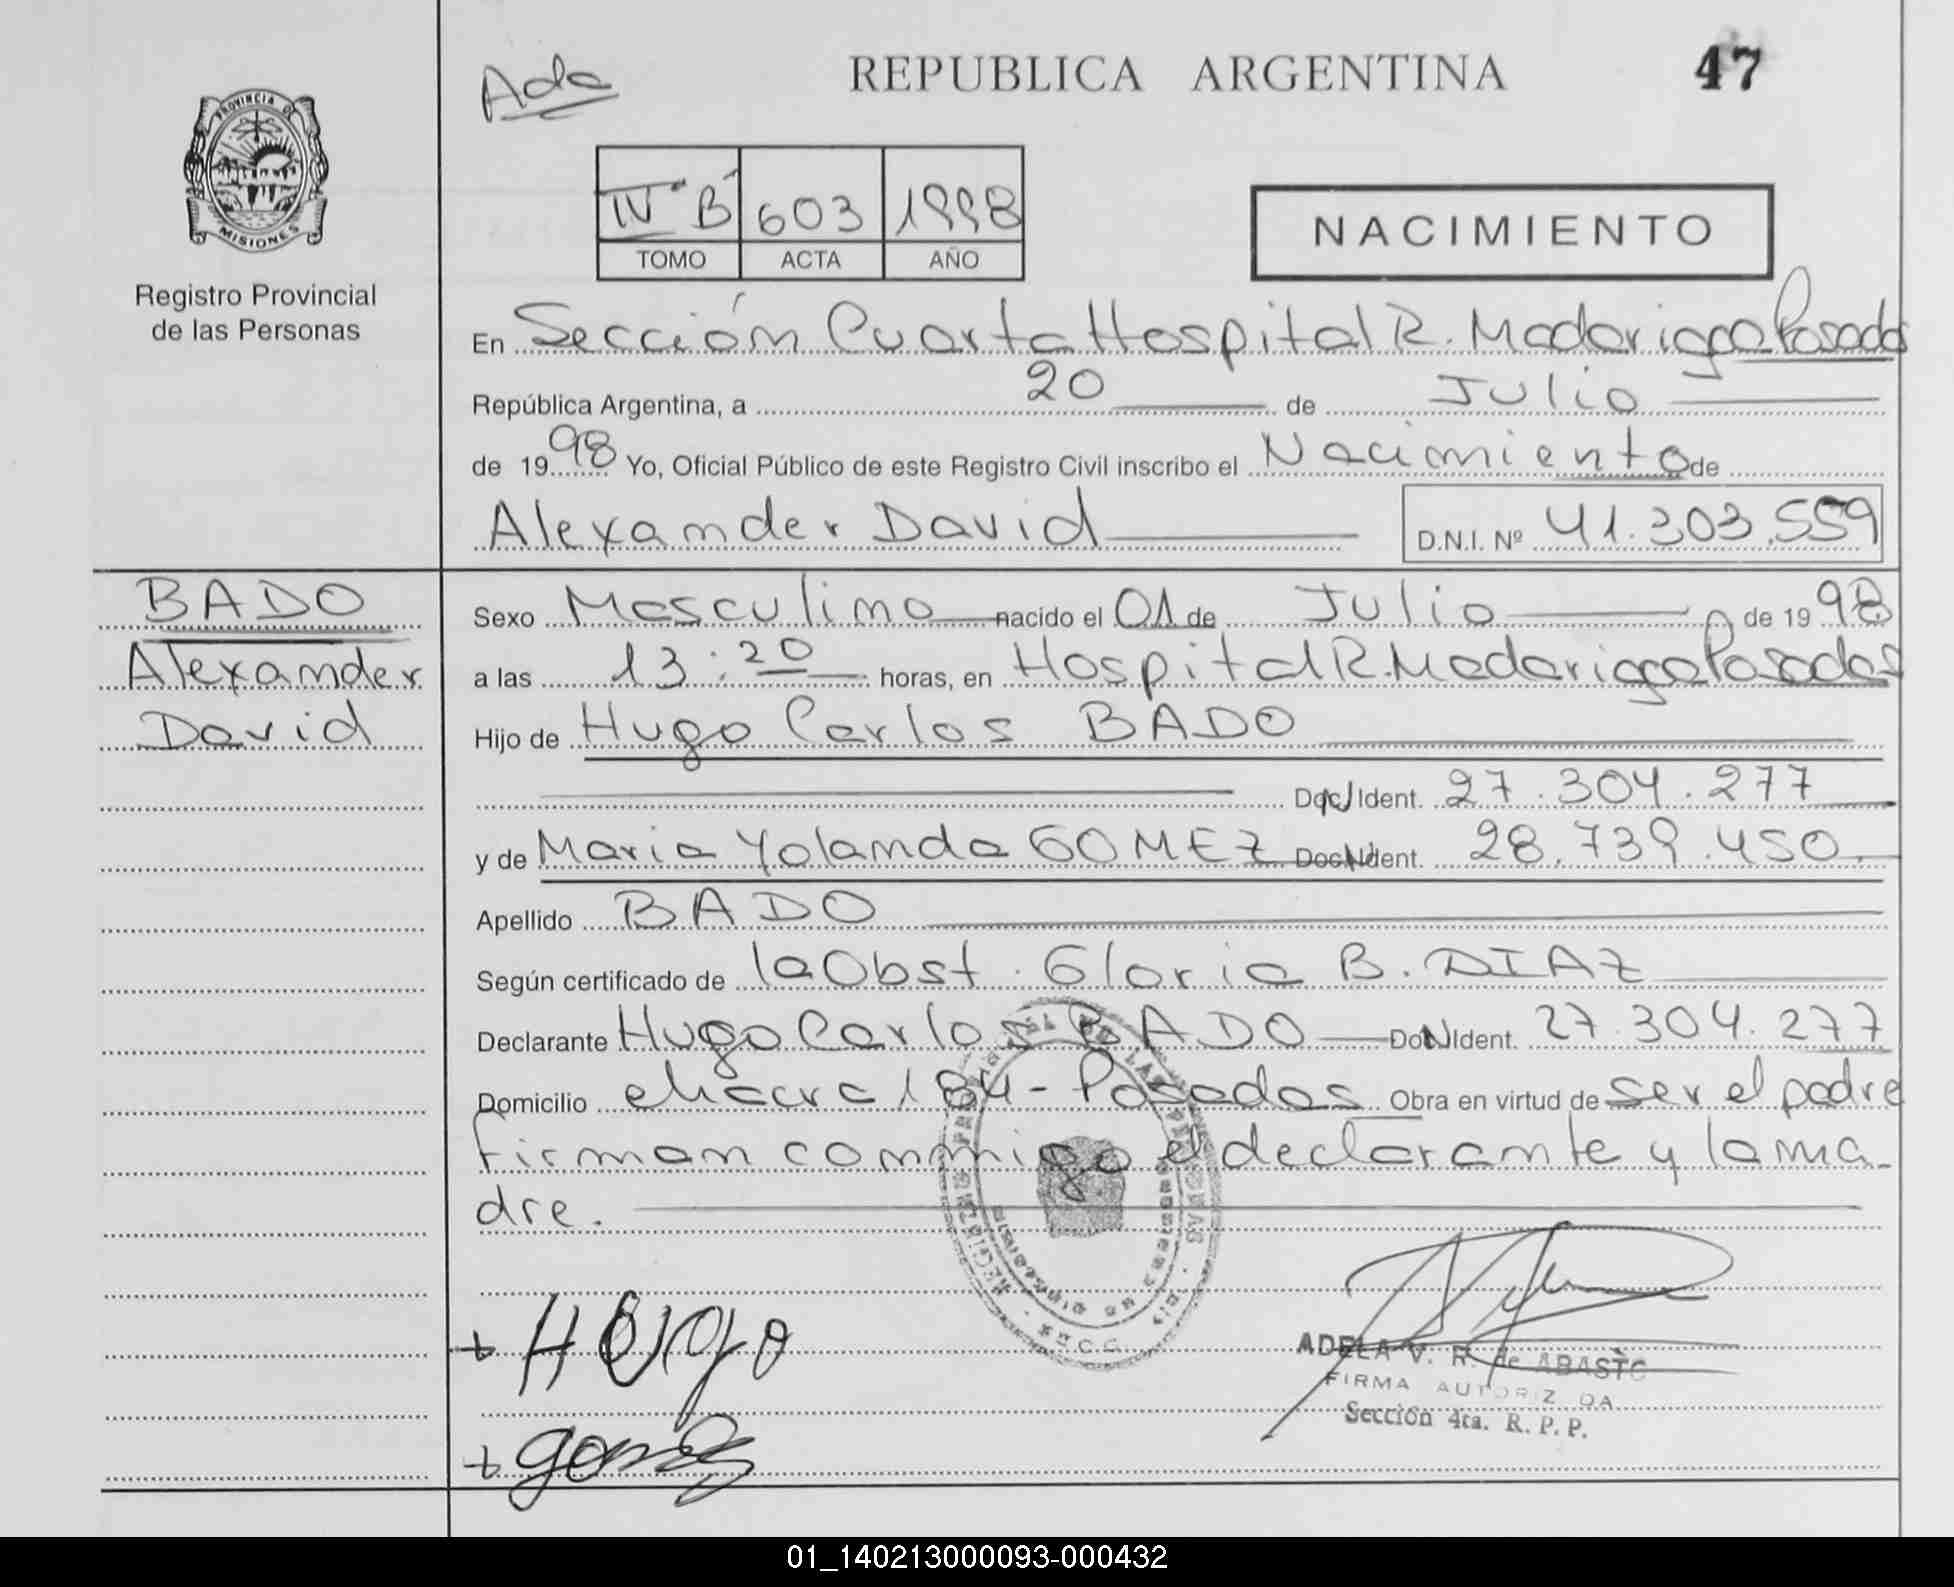 Ada
REPUBLICA ARGENTINA
47
PROVINCIA D
MISIONES
Registro Provincial
de las Personas
IV B 603 1998
TOMO ACTA AÑO
NACIMIENTO
En Sección Cuarta Hospital R. Madariaga Posadas
República Argentina, a 20 de Julio
de 1998 Yo, Oficial Público de este Registro Civil inscribo el Nacimiento de
Alexander David D.N.I. Nº 41.303.559
BADO
Alexander
David
Sexo Masculino nacido el 01 de Julio de 1998
a las 13:20 horas, en Hospital R. Madariaga Posadas
Hijo de Hugo Carlos BADO
Doc. Ident. 27.304.277
y de Maria Yolanda GOMEZ Doc. Ident. 28.739.450
Apellido BADO
Según certificado de la Obst. Gloria B. DIAZ
Declarante Hugo Carlos BADO Doc. Ident. 27.304.277
Domicilio chacra 184 - Posadas Obra en virtud de ser el padre
firman conmigo el declarante y la ma-
dre.
Hugo
ADELA V. R. de ABASTO
FIRMA AUTORIZADA
Sección 4ta. R. P. P.
gomez
01_140213000093-000432